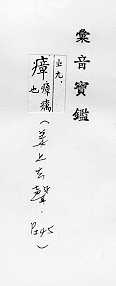 彙音寶鑑
五九.
瘴 瘴癘也
(姜上去聲. P.45)